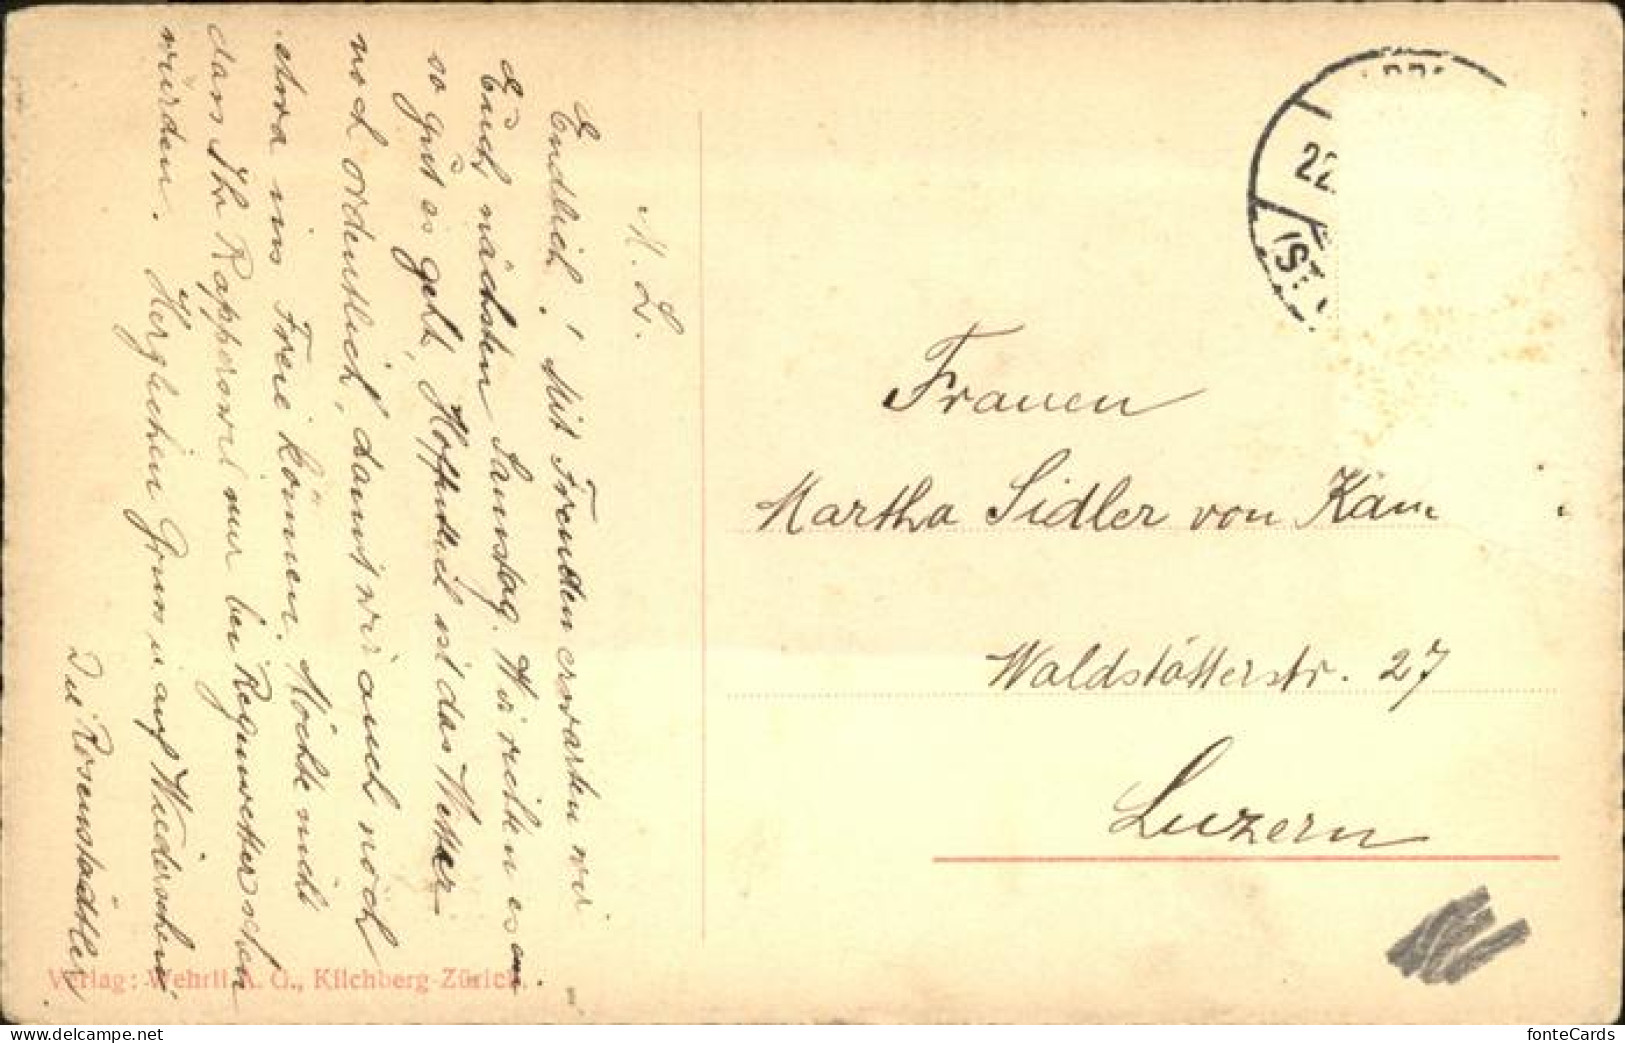 M. L.
Endlich! Mit Freuden erwarten wir
Euch nächsten Samstag. Wir richten es ein
so gut es geht. Hoffentlich ist das Wetter
noch ordentlich, damit wir auch noch
etwa ins Freie können. Möchte nicht
dass Ihr Rapperswil nur bei Regenwetter sehen
würden. Herzlichen Gruss u. auf Wiedersehen
Die Rosenstädtler.
Frauen
Martha Sidler von Käm
Waldstätterstr. 27
Luzern
22.
Verlag: Wehrli A. G., Kilchberg-Zürich.
fonteCards